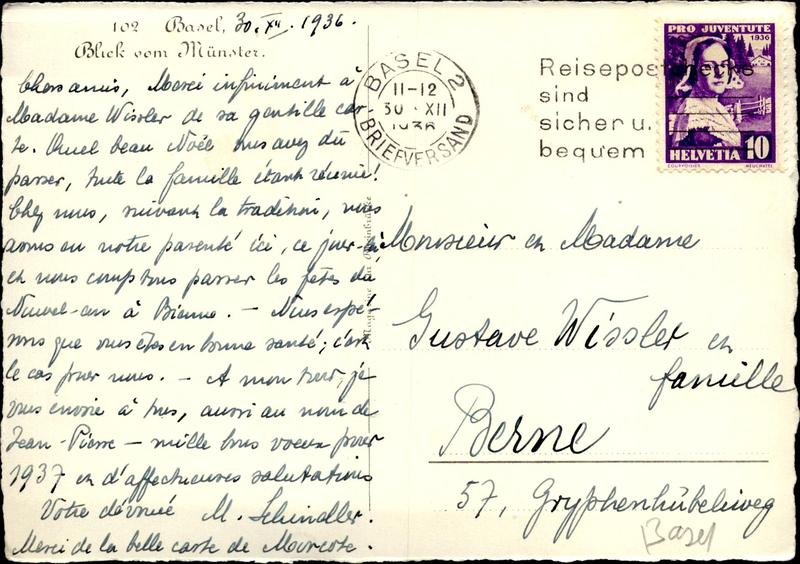 102 Basel, 30. XII. 1936.
Blick vom Münster.
Chers amis, Merci infiniment à
Madame Wissler de sa gentille car-
te. Quel beau Noël vous avez dû
passer, toute la famille étant réunie!
Chez nous, suivant la tradition, nous
avons eu notre parenté ici, ce jour-là
et nous comptons passer les fêtes du
Nouvel-an à Bienne. — Nous espé-
rons que vous êtes en bonne santé; c'est
le cas pour nous. — A mon tour, je
vous envoie à tous, aussi au nom de
Jean-Pierre — mille bons voeux pour
1937 et d'affectueuses salutations
Votre dévoué M. Schindler.
Merci de la belle carte de Morcote.
BASEL 2
11-12
30. XII
1936
BRIEFVERSAND
Reisepostchecks
sind
sicher u.
bequem
PRO JUVENTUTE
1936
HELVETIA 10
COURVOISIER
Monsieur et Madame
Gustave Wissler et
famille
Berne
57, Gryphenhübeliweg
Basel